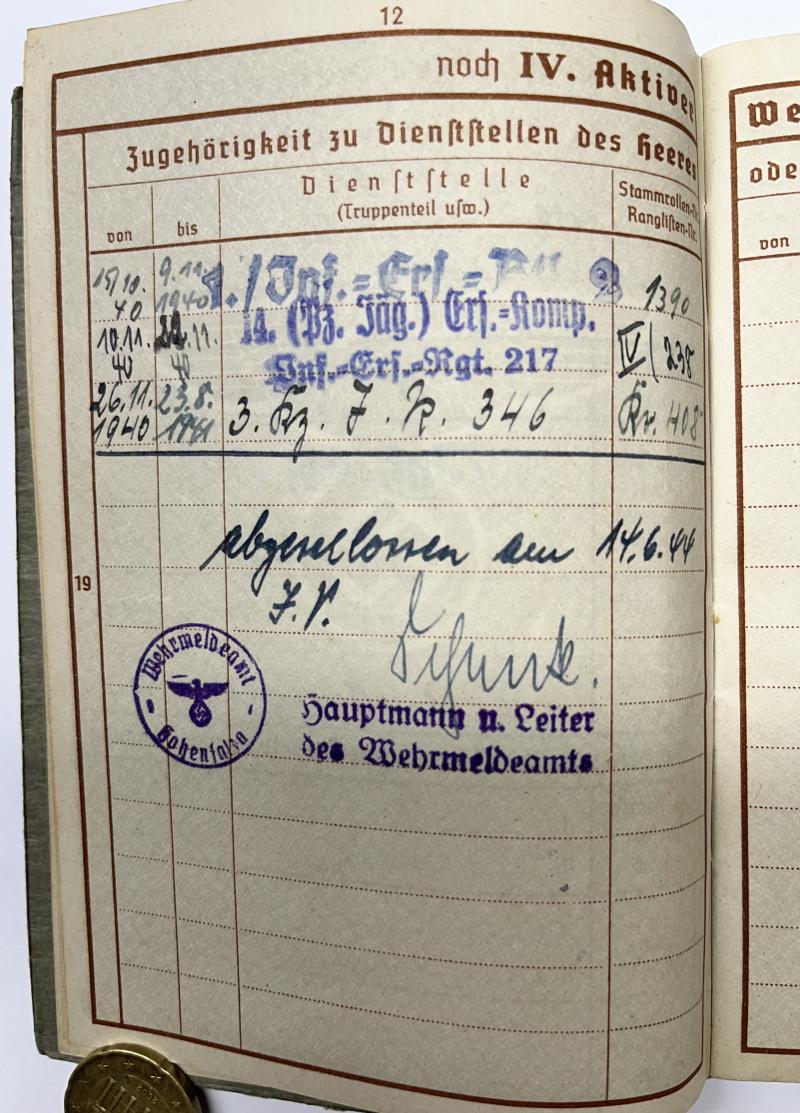 12
noch IV. Aktiver
Zugehörigkeit zu Dienststellen des Heeres
von
bis
Dienststelle
(Truppenteil usw.)
Stammrollen-Nr.
Ranglisten-Nr.
15/10. 40
9.11. 1940
1./Inf.=Ers.=
1390
10.11. 40
11. 40
14. (Pz. Jäg.) Ers.=Komp.
Inf.=Ers.=Rgt. 217
IV/238
26.11. 1940
23.8. 1941
3. Kz. J. R. 346
Kr. 408
abgeschlossen am 14.6.44
19
J.V.
Wehrmeldeamt
Hohensalza
Hauptmann u. Leiter
des Wehrmeldeamts
We
ode
von